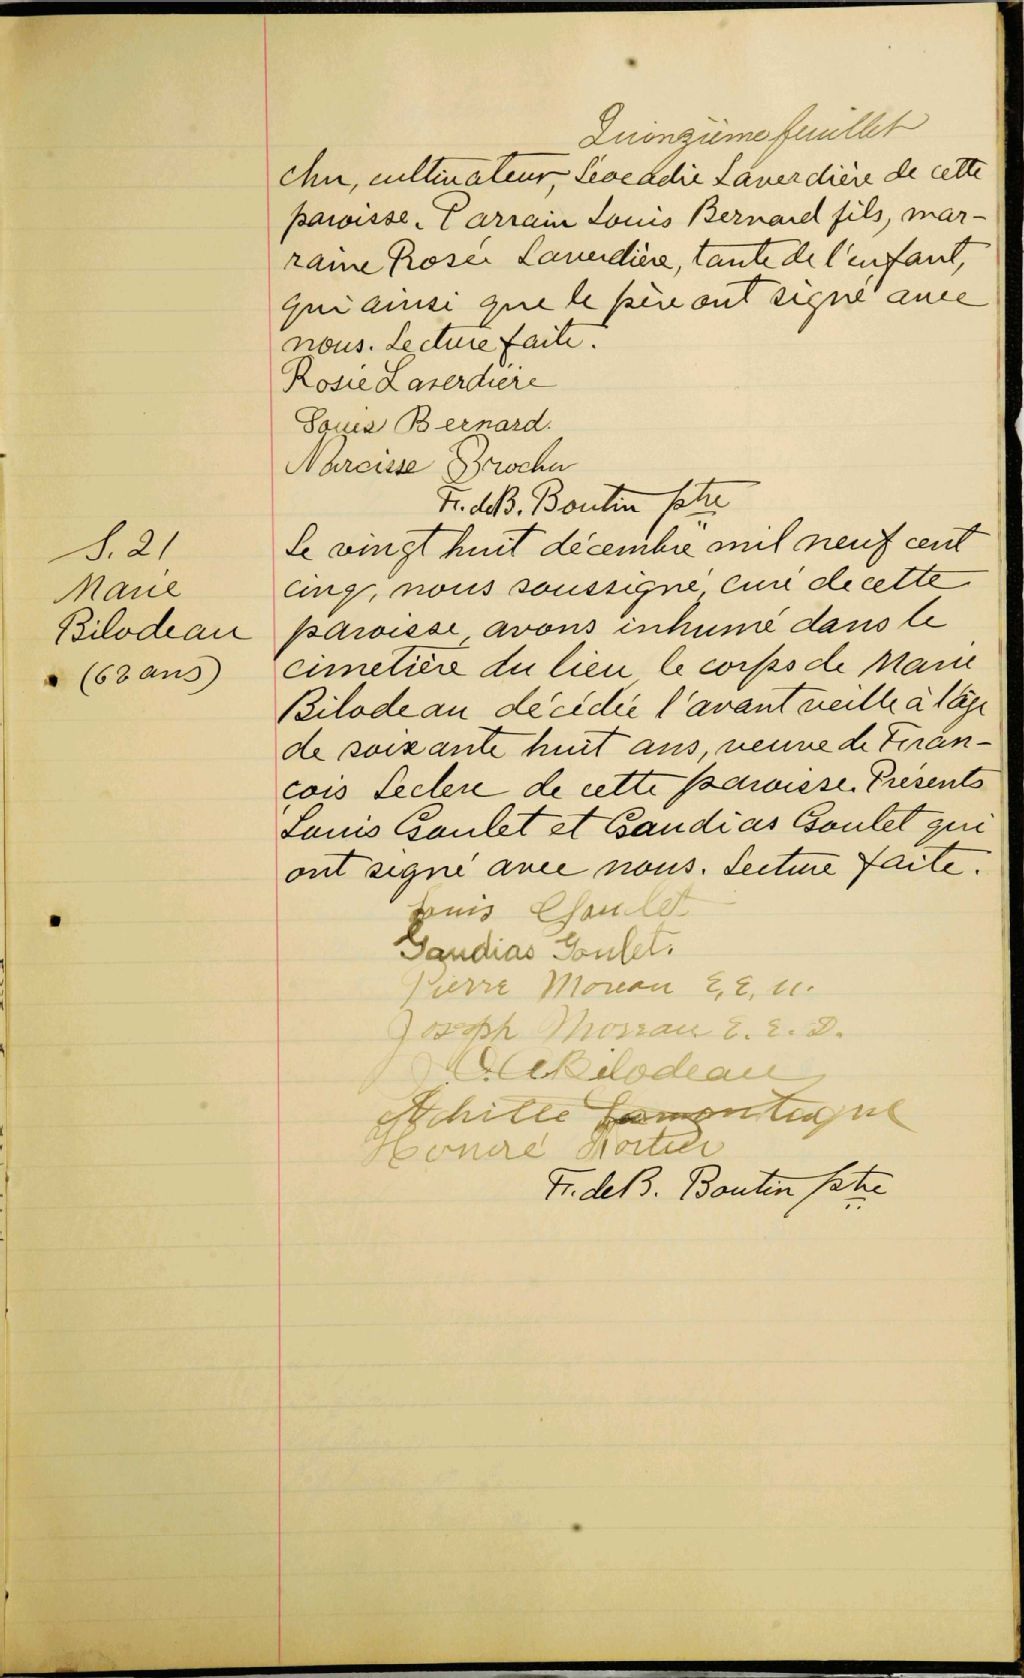 Quinzième feuillet
chu, cultinateur, Léocadie Laverdière de cette
paroisse. Parrain Louis Bernard fils, mar-
raine Rosée Laverdière, tante de l'enfant,
qui ainsi que le père ont signé avec
nous. Lecture faite.
Rosie Laverdière
Louis Bernard.
Narcisse Brochu
Fr. de B. Boutin ptre
S. 21
Marie
Bilodeau
(68 ans)
Le vingt huit décembre mil neuf cent
cinq, nous soussigné, curé de cette
paroisse, avons inhumé dans le
cimetière du lieu le corps de Marie
Bilodeau décédée l'avant veille à l'âge
de soixante huit ans, veuve de Fran-
çois Leclerc de cette paroisse. Présents
Louis Goulet et Gaudias Goulet qui
ont signé avec nous. Lecture faite.
Louis Goulet
Gaudias Goulet.
Pierre Moreau E. E. M.
Joseph Moreau E. E. D.
Bilodeau
Achille Lamontagne
Honoré Mortier
Fr. de B. Boutin ptre